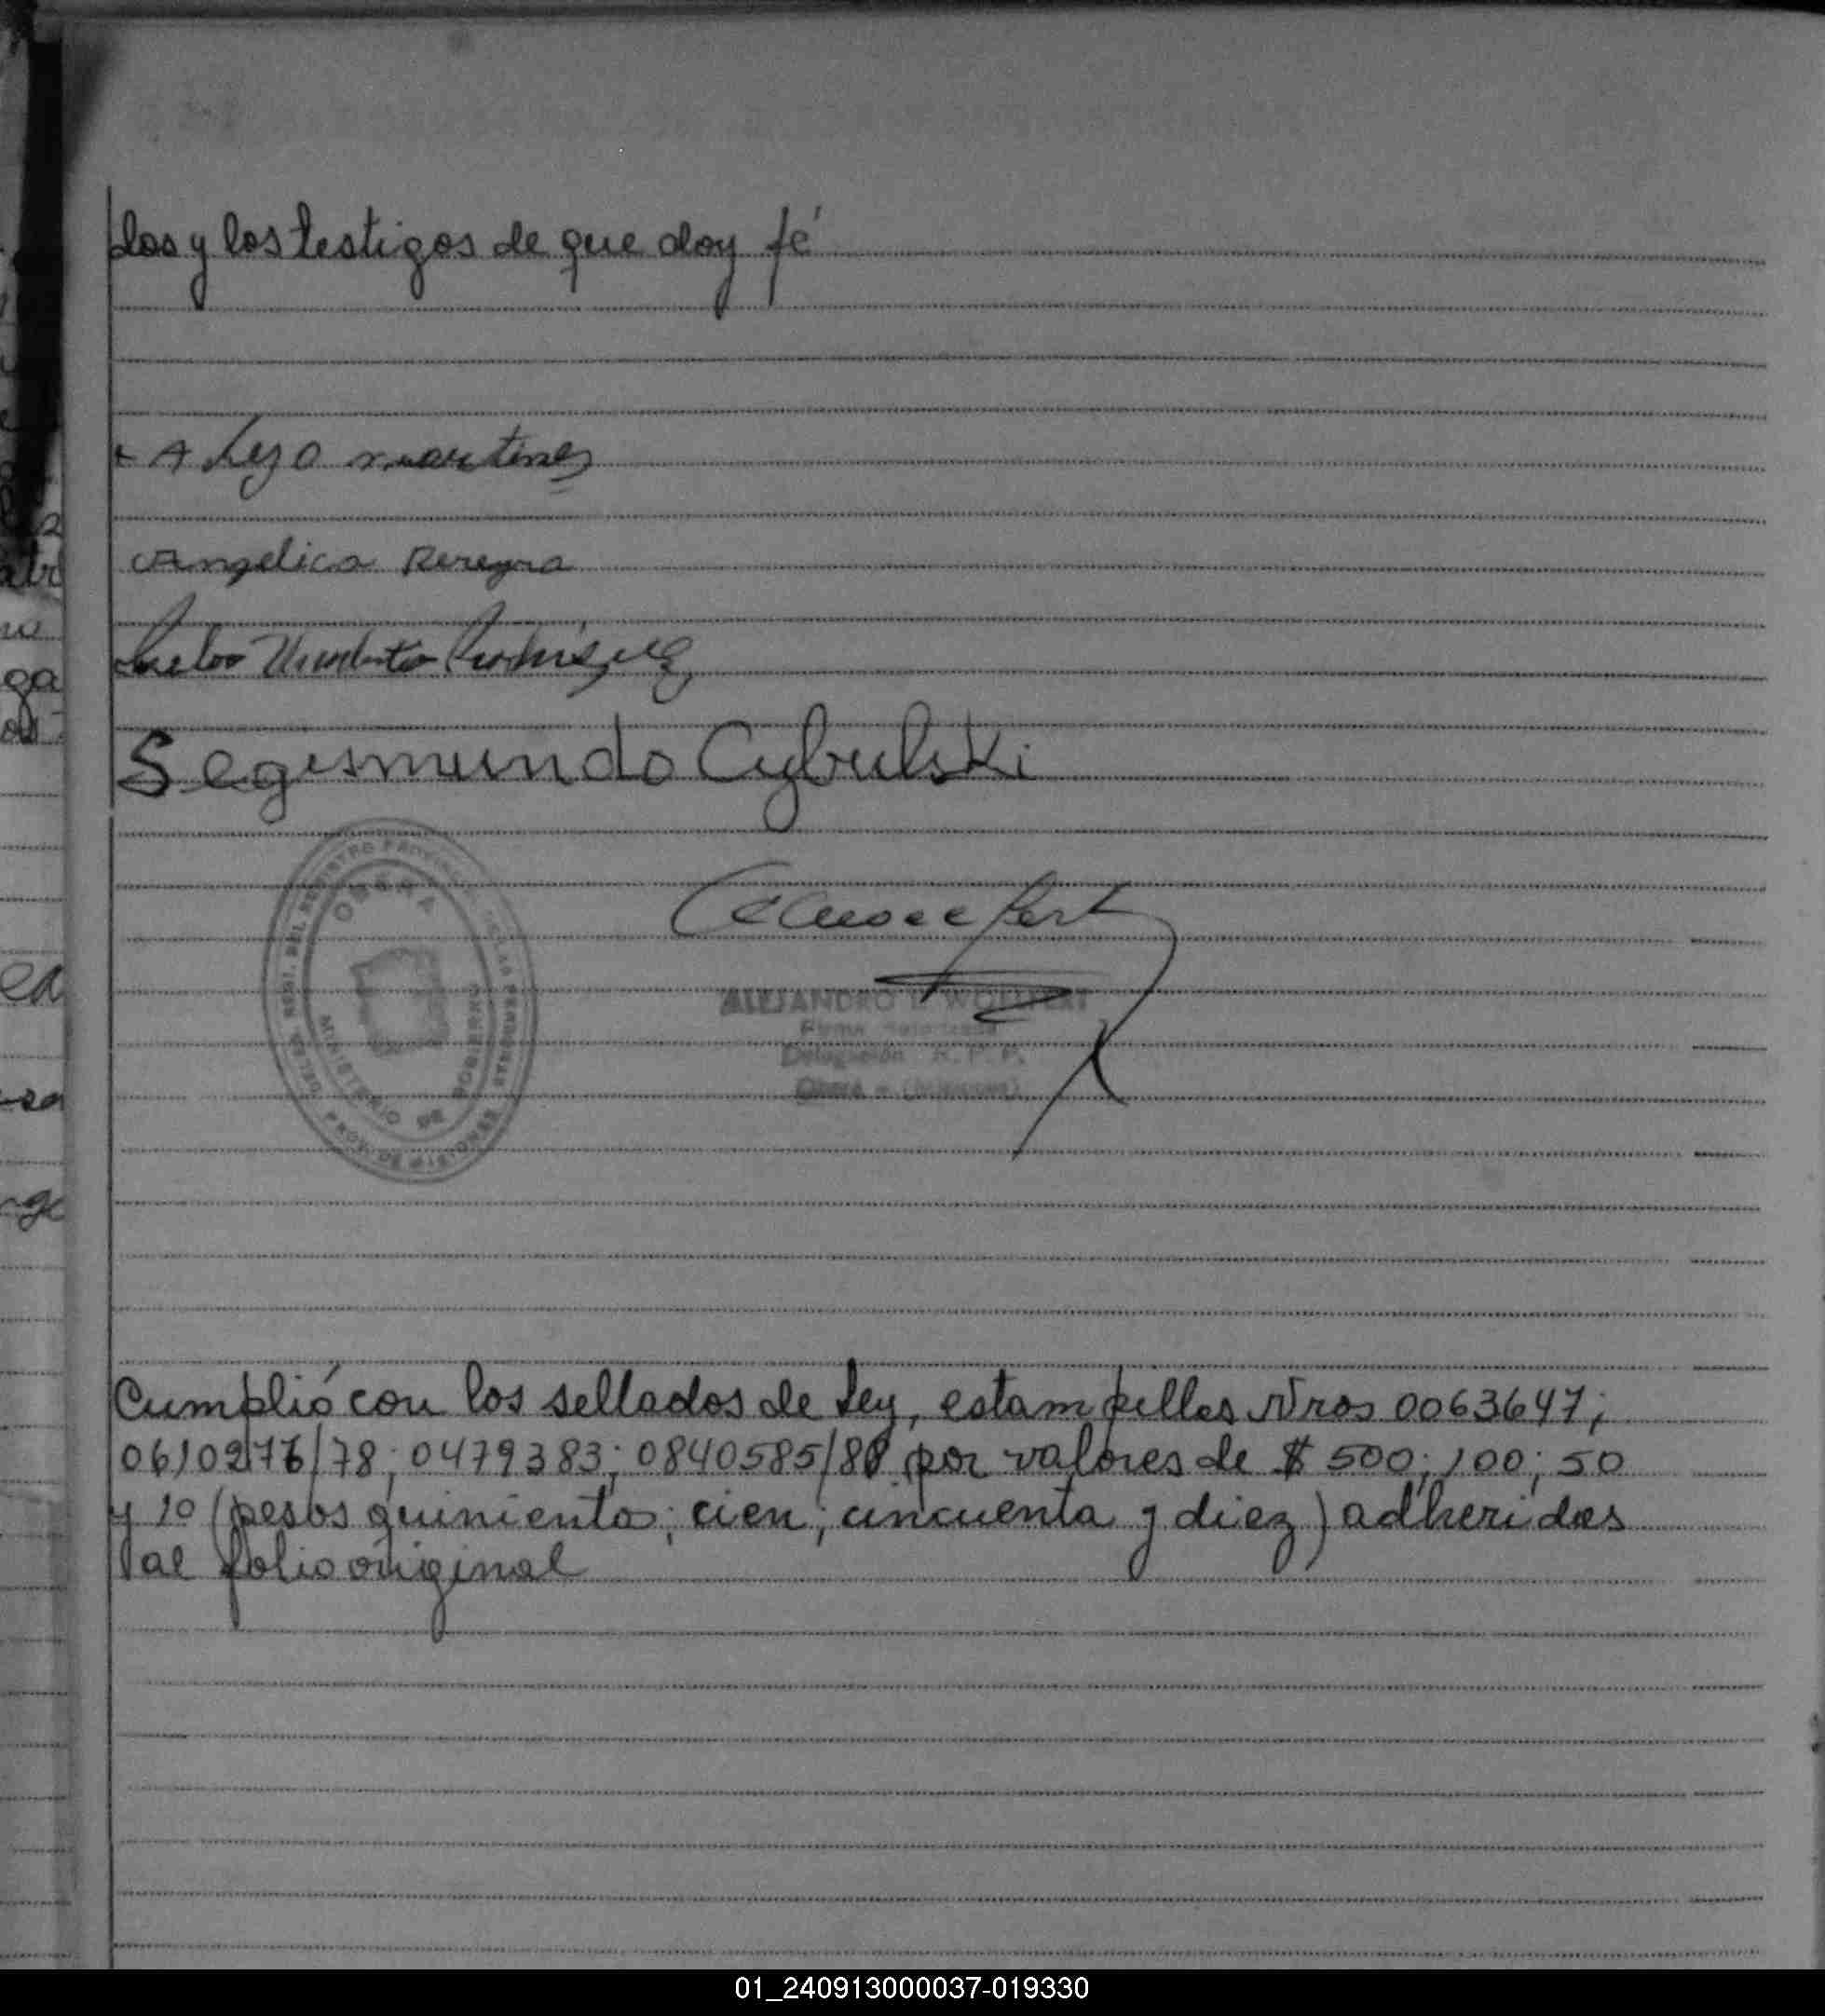 dos y los testigos de que doy fé
Alejo martines
Angelica Pereyra
Rodriguez
Segismundo Cybulski
OBERA
MINISTERIO DE GOBIERNO
ALEJANDRO
Firma Autorizada
Delegación R. P. P.
Oberá - (Misiones)
Cumplió con los sellados de Ley, estampillas Nros 0063647;
/78; 0479383; por valores de $ 500; 100; 50
y 10 (pesos quinientos; cien; cincuenta y diez) adheridas
al folio original
01_240913000037-019330